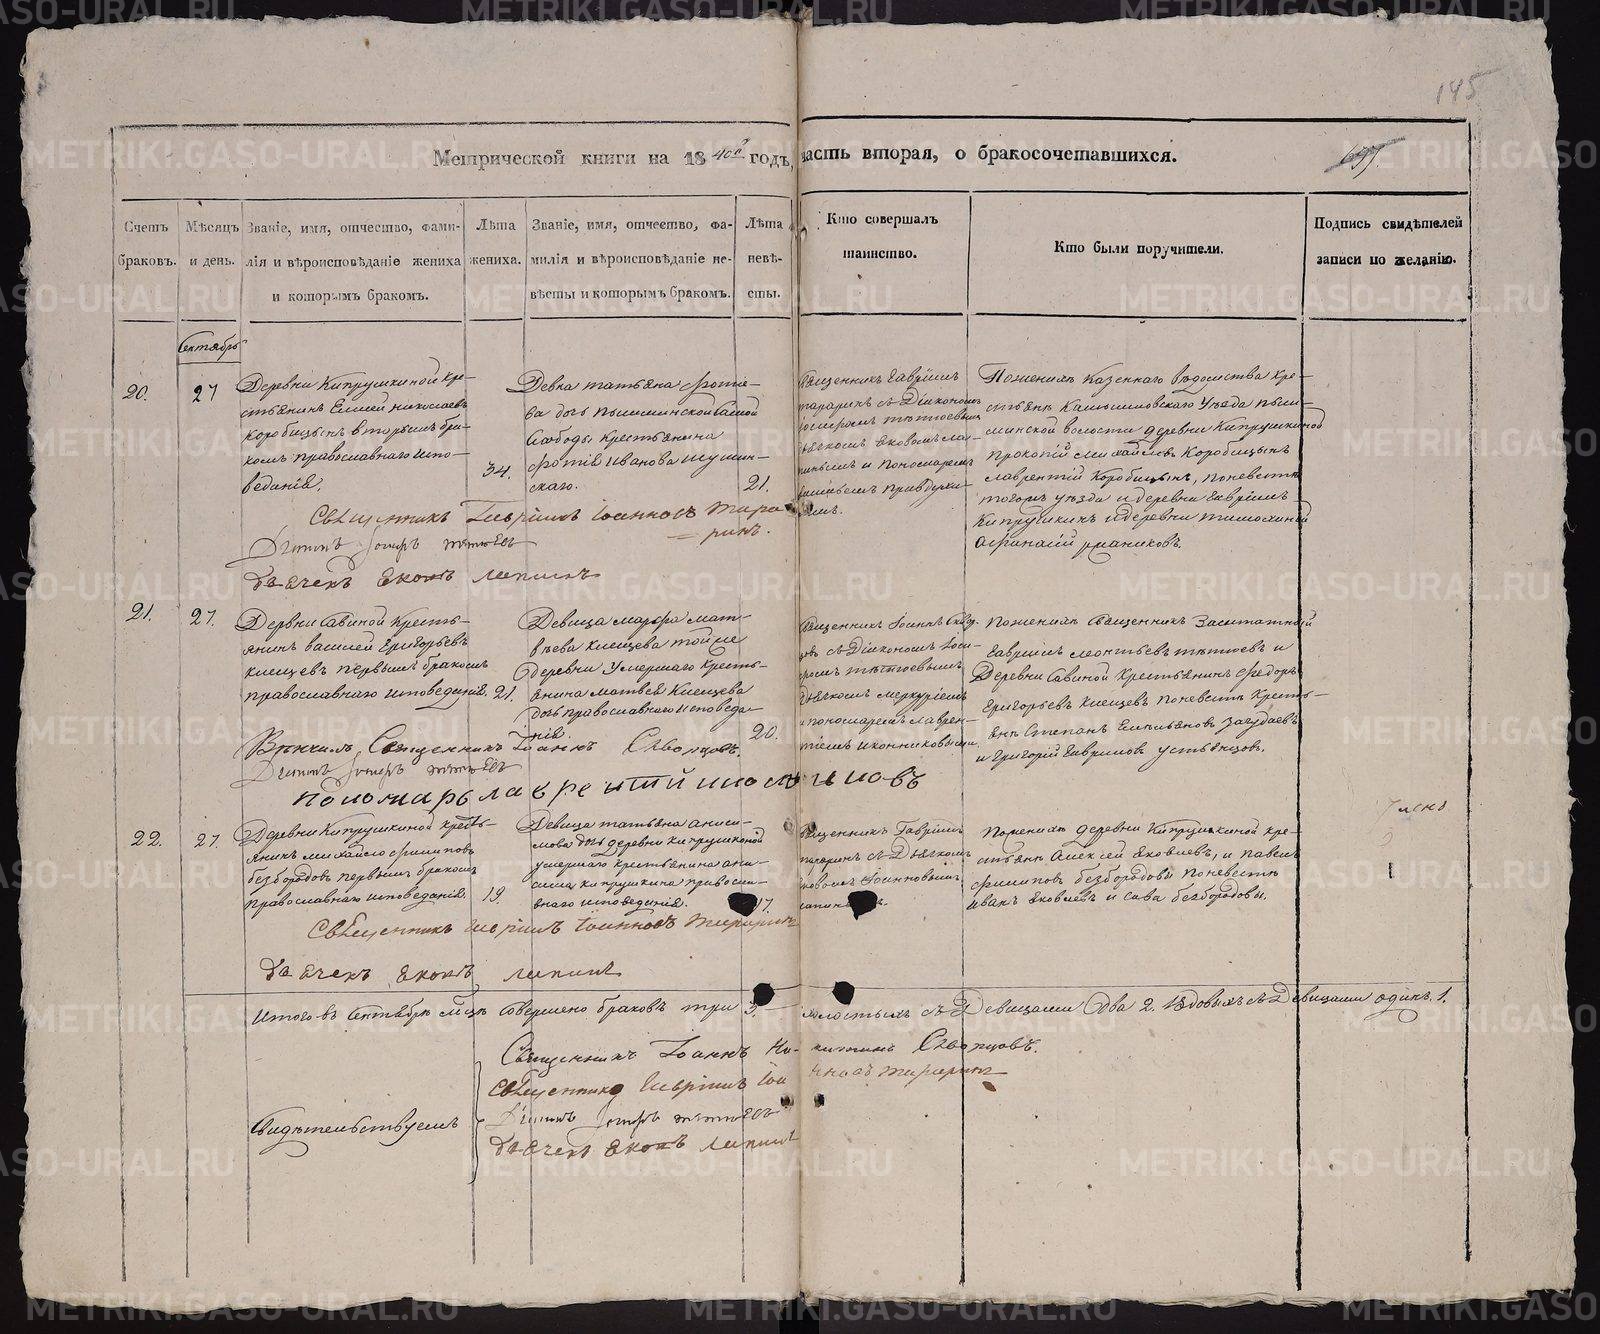 145
Метрической книги на 1840й годъ, часть вторая, о бракосочетавшихся.
697.
Счетъ браковъ.
Мѣсяцъ и день.
Званіе, имя, отчество, фами-
лія и вѣроисповѣданіе жениха
и которымъ бракомъ.
Лѣта
жениха.
Званіе, имя, отчество, фа-
милія и вѣроисповѣданіе не-
вѣсты и которымъ бракомъ.
Лѣта
невѣ-
сты.
Кто совершалъ
таинство.
Кто были поручители.
Подпись свидѣтелей
записи по желанію.
Сентябрь
20.
27
Деревни Кипрушкиной кре-
стьянинъ Елисей Николаевъ
Коробицынъ вторымъ бра-
комъ православнаго испо-
веданія.
34.
Девка татьяна фотіе-
ва дочь Пышминской самой
Слободы крестьянина
фотія Иванова шушин-
скаго.
21.
Священникъ Гавріилъ
тараринъ съ Діякономъ
дьячкомъ яковомъ ла-
пинымъ и Пономаремъ
Поженихѣ казеннаго вѣдомства кре-
стьянъ Камышловскаго Уезда пыш-
минской волости деревни Кипрушкиной
Прокопій михайловъ Коробицынъ
лаврентій Коробицынъ, поневесте
тогожъ уезда и деревни гавріилъ
Кипрушкинъ и деревни тимохиной
Афанасій
Священникъ Гавріилъ Іоанновъ Тара
ринъ.
Діаконъ
дьячекъ яковъ лапинъ
21.
27.
Дервни Савиной Кресть-
янинъ василей Григорьевъ
клещевъ первымъ бракомъ
православнаго исповеданія.
21.
Девица марфа мат-
вѣева клещева тойже
деревни умершаго кресть-
янина матвея Клещева
дочь православнаго исповеда-
нія.
20.
Священникъ Іоаннъ Скво-
цовъ съ Діякономъ
дьячкомъ меркуріемъ
и пономаремъ лаврен-
тіемъ иконниковымъ
Поженихѣ Священникъ Заштатной
Гавріилъ леонтьевъ и
Деревни Савиной Крестьянинъ Федоръ
Григорьевъ клещевъ Поневесте Кресть-
янъ Степанъ Емельяновъ
и Григорій Гавриловъ устьянцовъ.
Венчалъ, Священникъ Іоаннъ Скворцовъ.
Діаконъ
пономарь лаврентій
22.
27.
Деревни Кипрушкиной кресть-
янинъ михайло филиповъ
безбородовъ первымъ бракомъ
православнаго исповеданія.
19.
Девица татьяна аниси-
мова дочь деревни кипрушкиной
умершаго крестьянина ани-
сима кипрушкина правосла-
внаго исповеданія.
17.
Священникъ Гавріилъ
тараринъ съ Дьячкомъ
яковомъ Іоанновымъ
лапинымъ.
Поженихѣ деревни Кипрушкиной кре-
стьянъ Алексей яковлевъ, и павелъ
филиповъ безбородовы Поневесте
иванъ яковлевъ и сава безбородовы.
Священникъ Гавріилъ Іоанновъ Тараринъ
дьячекъ яковъ лапинъ
Итого въ Сентябрѣ мѣцѣ Совершено браковъ три 3. — холостыхъ съ Девицами Два 2. Вдовыхъ съ Девицами одинъ 1.
Свидѣтельствуемъ
Священникъ Іоаннъ Ни-китинъ Скворцовъ.
Священникъ Гавріилъ Іоанновъ Тараринъ
Діаконъ
дьячекъ яковъ лапинъ